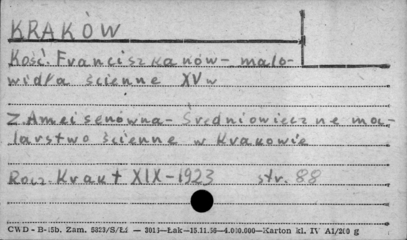 KRAKÓW
Kość. Franciszkanów - malo-
widła ścienne XV w
Z. Ameisenówna - Średniowieczne ma-
larstwo ścienne w Krakowie
Rocz. Krak t XIX - 1923 str. 88
CWD - B-15b. Zam. 5823/S/Łi — 3013—Łak—15.11.56—4.000.000—Karton kl. IV A1/200 g